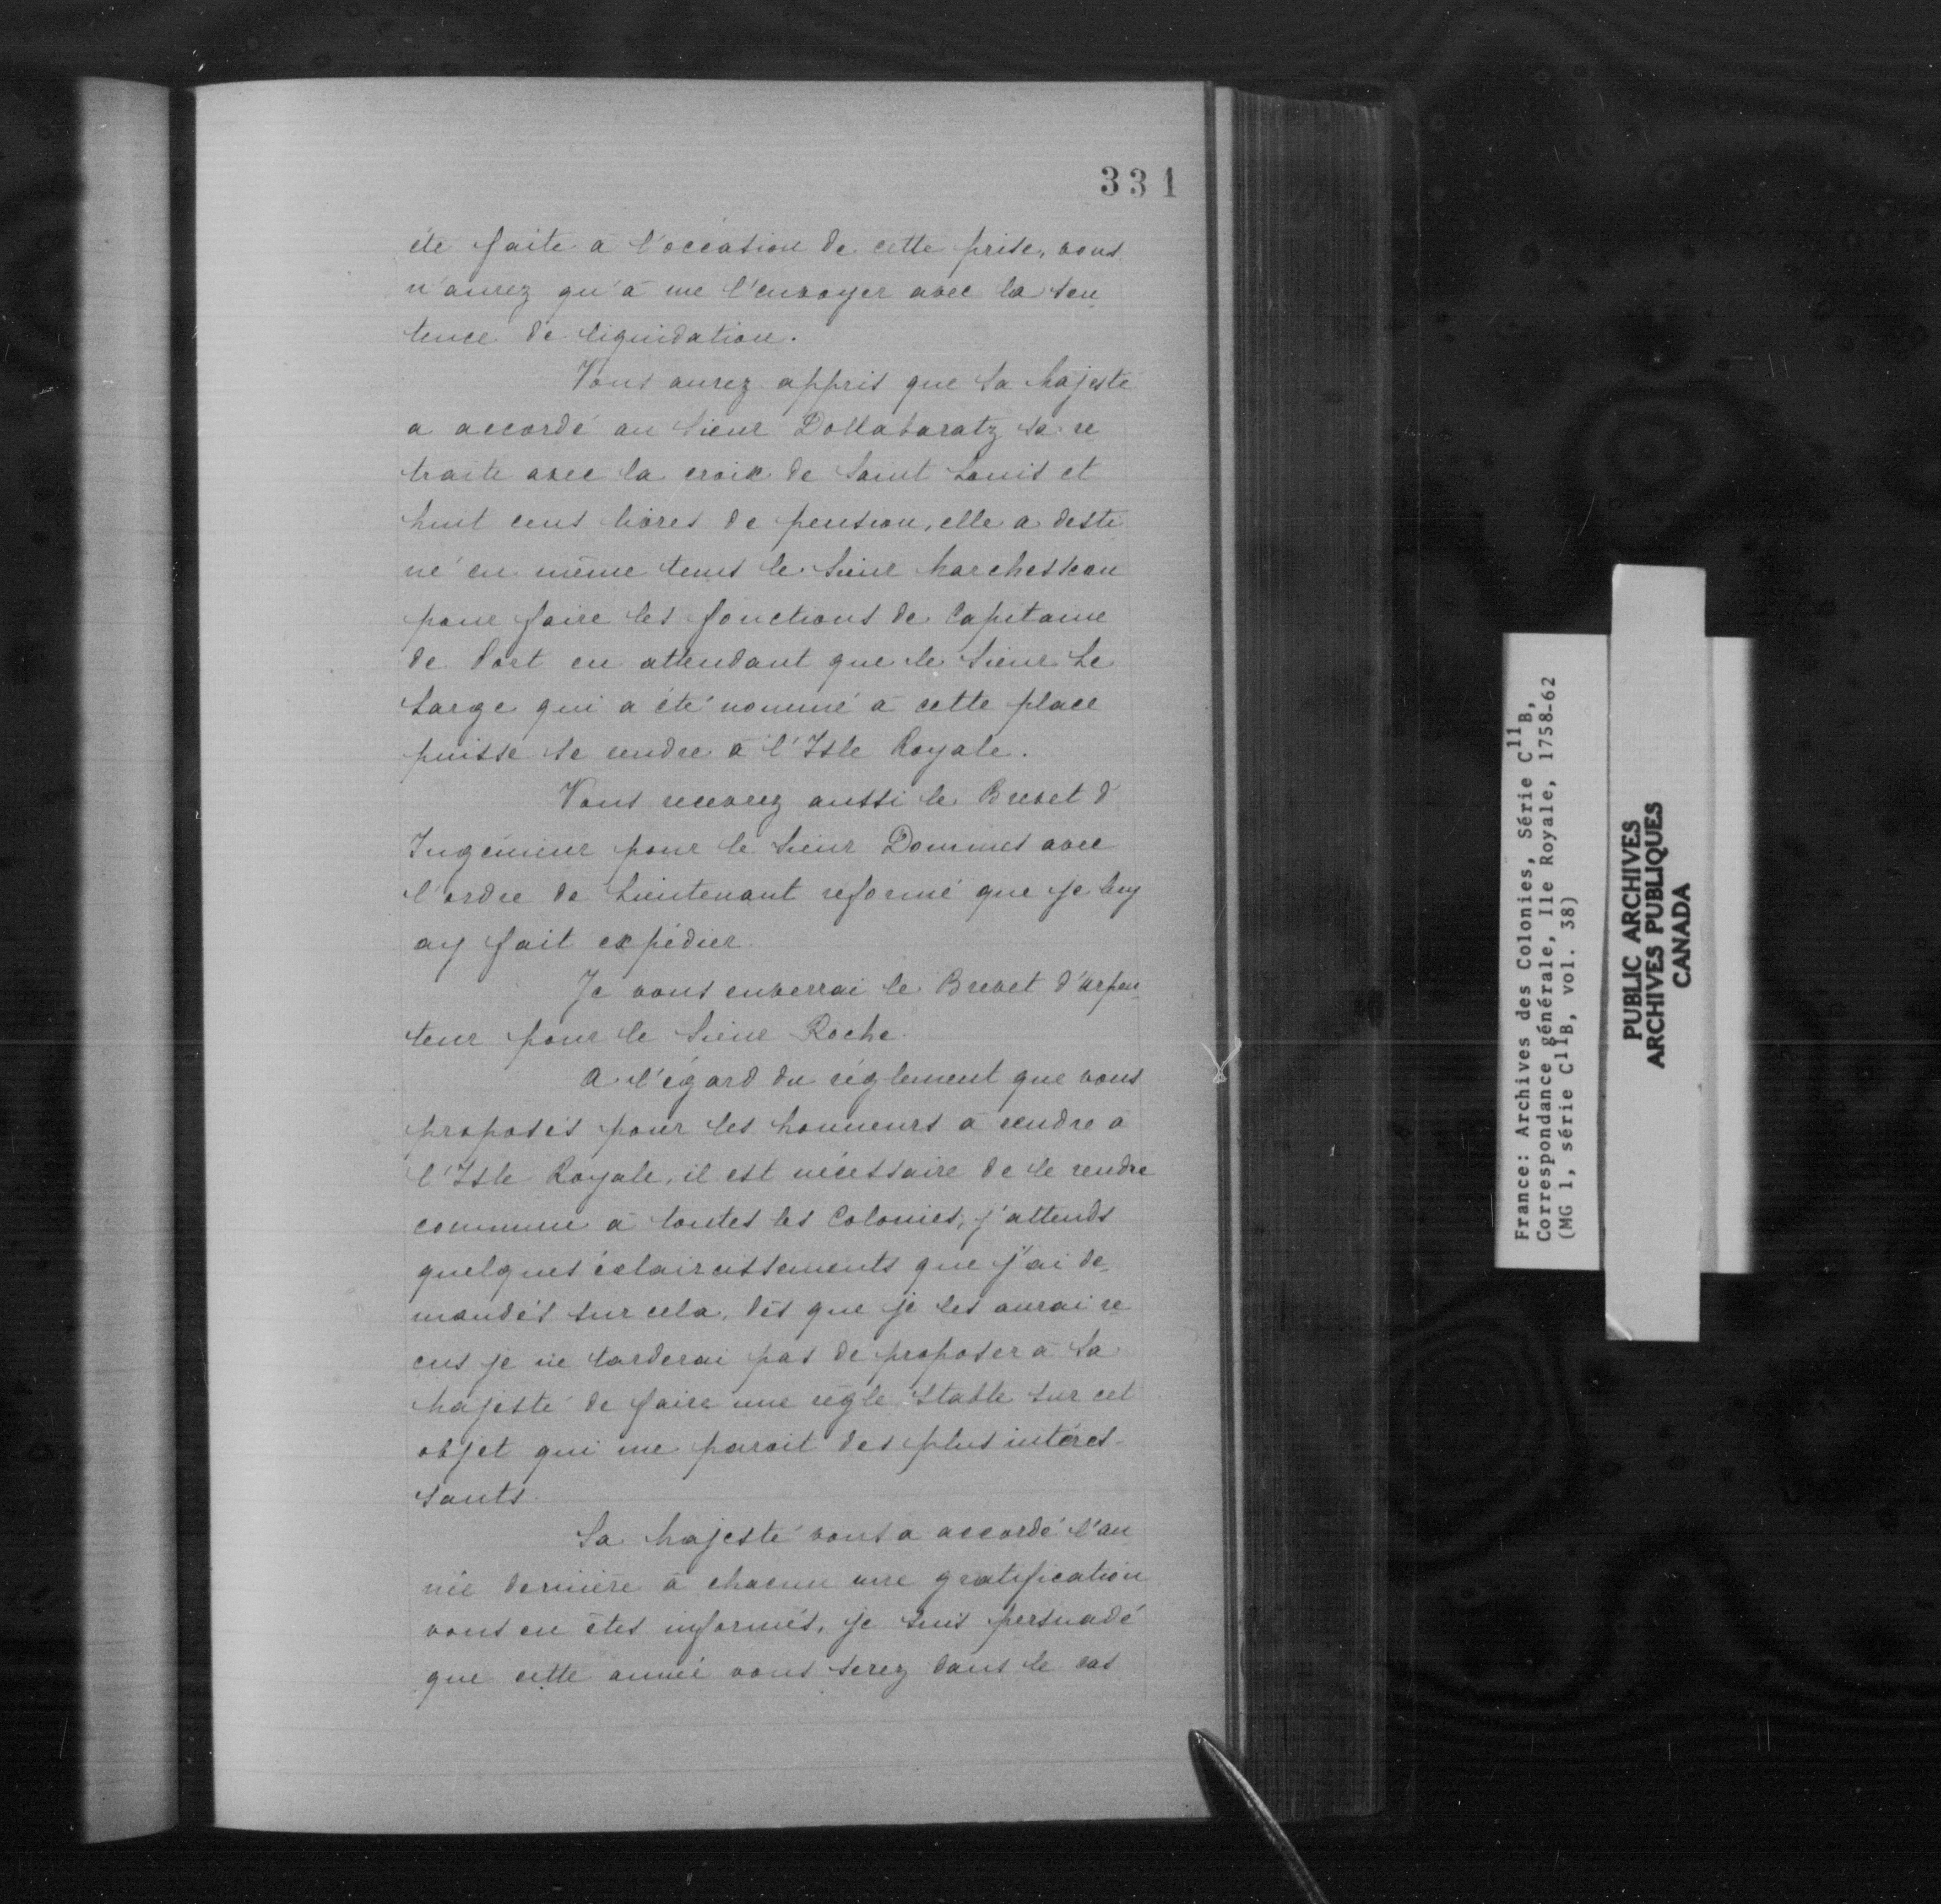 331
été faite à l'occasion de cette prise, vous
n'aurez qu'à me l'envoyer avec la sen
tence de liquidation.
Vous aurez appris que Sa Majesté
a accordé au Sieur Dollabaratz sa re
traite avec la croix de Saint Louis et
huit cens livres de pension, elle a desti
né en même tems le Sieur Marchesseau
pour faire les fonctions de Capitaine
de Port en attendant que le Sieur Le
Large qui a été nommé à cette place
puisse se rendre à l'Isle Royale.
Vous recevrez aussi le Brevet d'
Ingénieur pour le Sieur Dommes avec
l'ordre de Lieutenant reformé que je luy
ay fait expédier.
Je vous enverrai le Brevet d'arpen
teur pour le Sieur Roche.
A l'égard du réglement que vous
proposés pour les honneurs à rendre à
l'Isle Royale, il est nécessaire de le rendre
commun à toutes les Colonies; j'attends
quelques éclaircissements que j'ai de
mandés sur cela, dès que je les aurai re
cus je ne tarderai pas de proposer à Sa
Majesté de faire une règle stable sur cet
objet qui me paroit des plus intéres-
sants.
Sa Majesté vous a accordé l'an
née dernière à chacun une gratification
vous en êtes informés, je suis persuadé
que cette année vous serez dans le cas
France: Archives des Colonies, Série C11B,
Correspondance générale, Ile Royale, 1758-62
(MG 1, série C11B, vol. 38)
PUBLIC ARCHIVES
ARCHIVES PUBLIQUES
CANADA